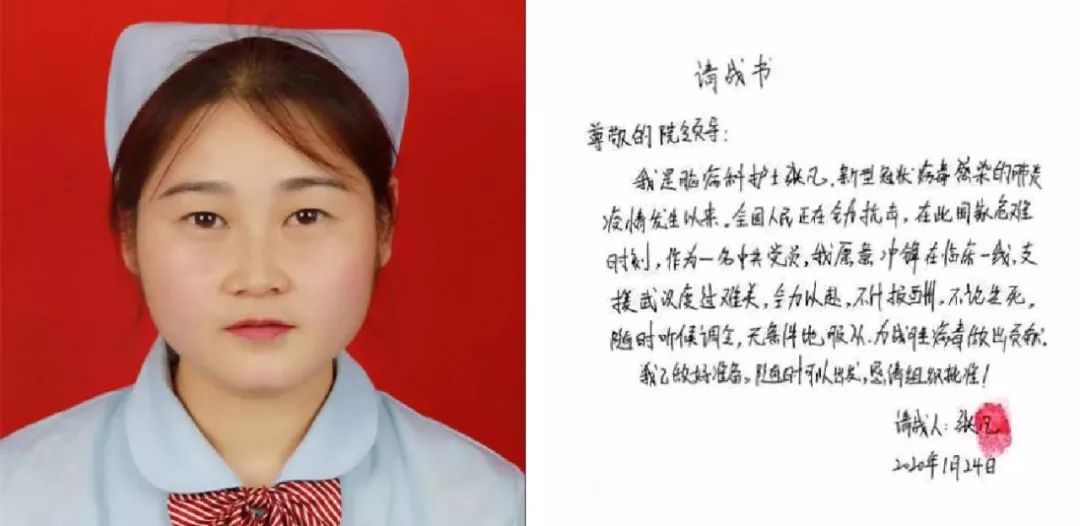 请战书
尊敬的院领导：
我是脑病科护士张凡，新型冠状病毒感染的肺炎
疫情发生以来。全国人民正在全力抗击，在此国家危难
时刻，作为一名中共党员，我愿意冲锋在临床一线，支
援武汉度过难关，全力以赴，不计报酬，不论生死，
随时听候调令，无条件地服从，为战胜病毒做出贡献。
我已做好准备，随时可以出发，恳请组织批准！
请战人：张凡
2020年1月24日